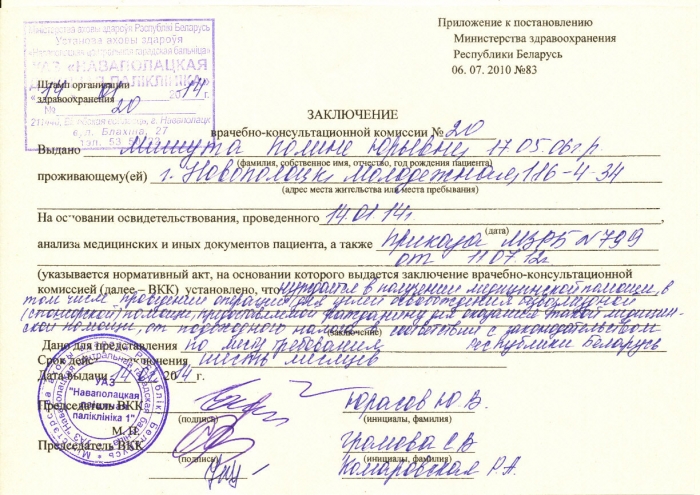 Приложение к постановлению
Министерства здравоохранения
Республики Беларусь
06. 07. 2010 №83
Міністэрства аховы здароўя Рэспублікі Беларусь
Установа аховы здароўя
«Наваполацкая цэнтральная гарадская бальніца»
УАЗ «НАВАПОЛАЦКАЯ
ПАЛІКЛІНІКА»
Штамп организации
здравоохранения
«14» 01 2014г.
№ 20
г. Наваполацк
вул. Блахіна, 27
ЗАКЛЮЧЕНИЕ
врачебно-консультационной комиссии № 20
Выдано Мишута Полине Юрьевне 17.05.06г.р.
(фамилия, собственное имя, отчество, год рождения пациента)
проживающему(ей) г. Новополоцк, Молодежная, 186-4-34
(адрес места жительства или места пребывания)
На основании освидетельствования, проведенного 14.01.14г.
(дата)
анализа медицинских и иных документов пациента, а также Приказа МЗРБ №799
от 11.07.12г.
(указывается нормативный акт, на основании которого выдается заключение врачебно-консультационной
комиссией (далее – ВКК) установлено, что нуждается в получении медицинской помощи, в
том числе проведении операции для целей освобождения безвозмездной
(спонсорской) помощи, предоставляемой гражданину для оказания такой медицин-
ской помощи, от подоходного налога в соответствии с законодательством
(заключение)
Дано для представления по месту требования Республики Беларусь
Срок действия заключения шесть месяцев
Дата выдачи 14 01 2014г.
УАЗ
"Наваполацкая
паліклініка 1"
Председатель ВКК Юрасов Ю.В.
(подпись) (инициалы, фамилия)
М. П.
Председатель ВКК Громова С.В
(подпись) (инициалы, фамилия)
Комаровская Р.А.